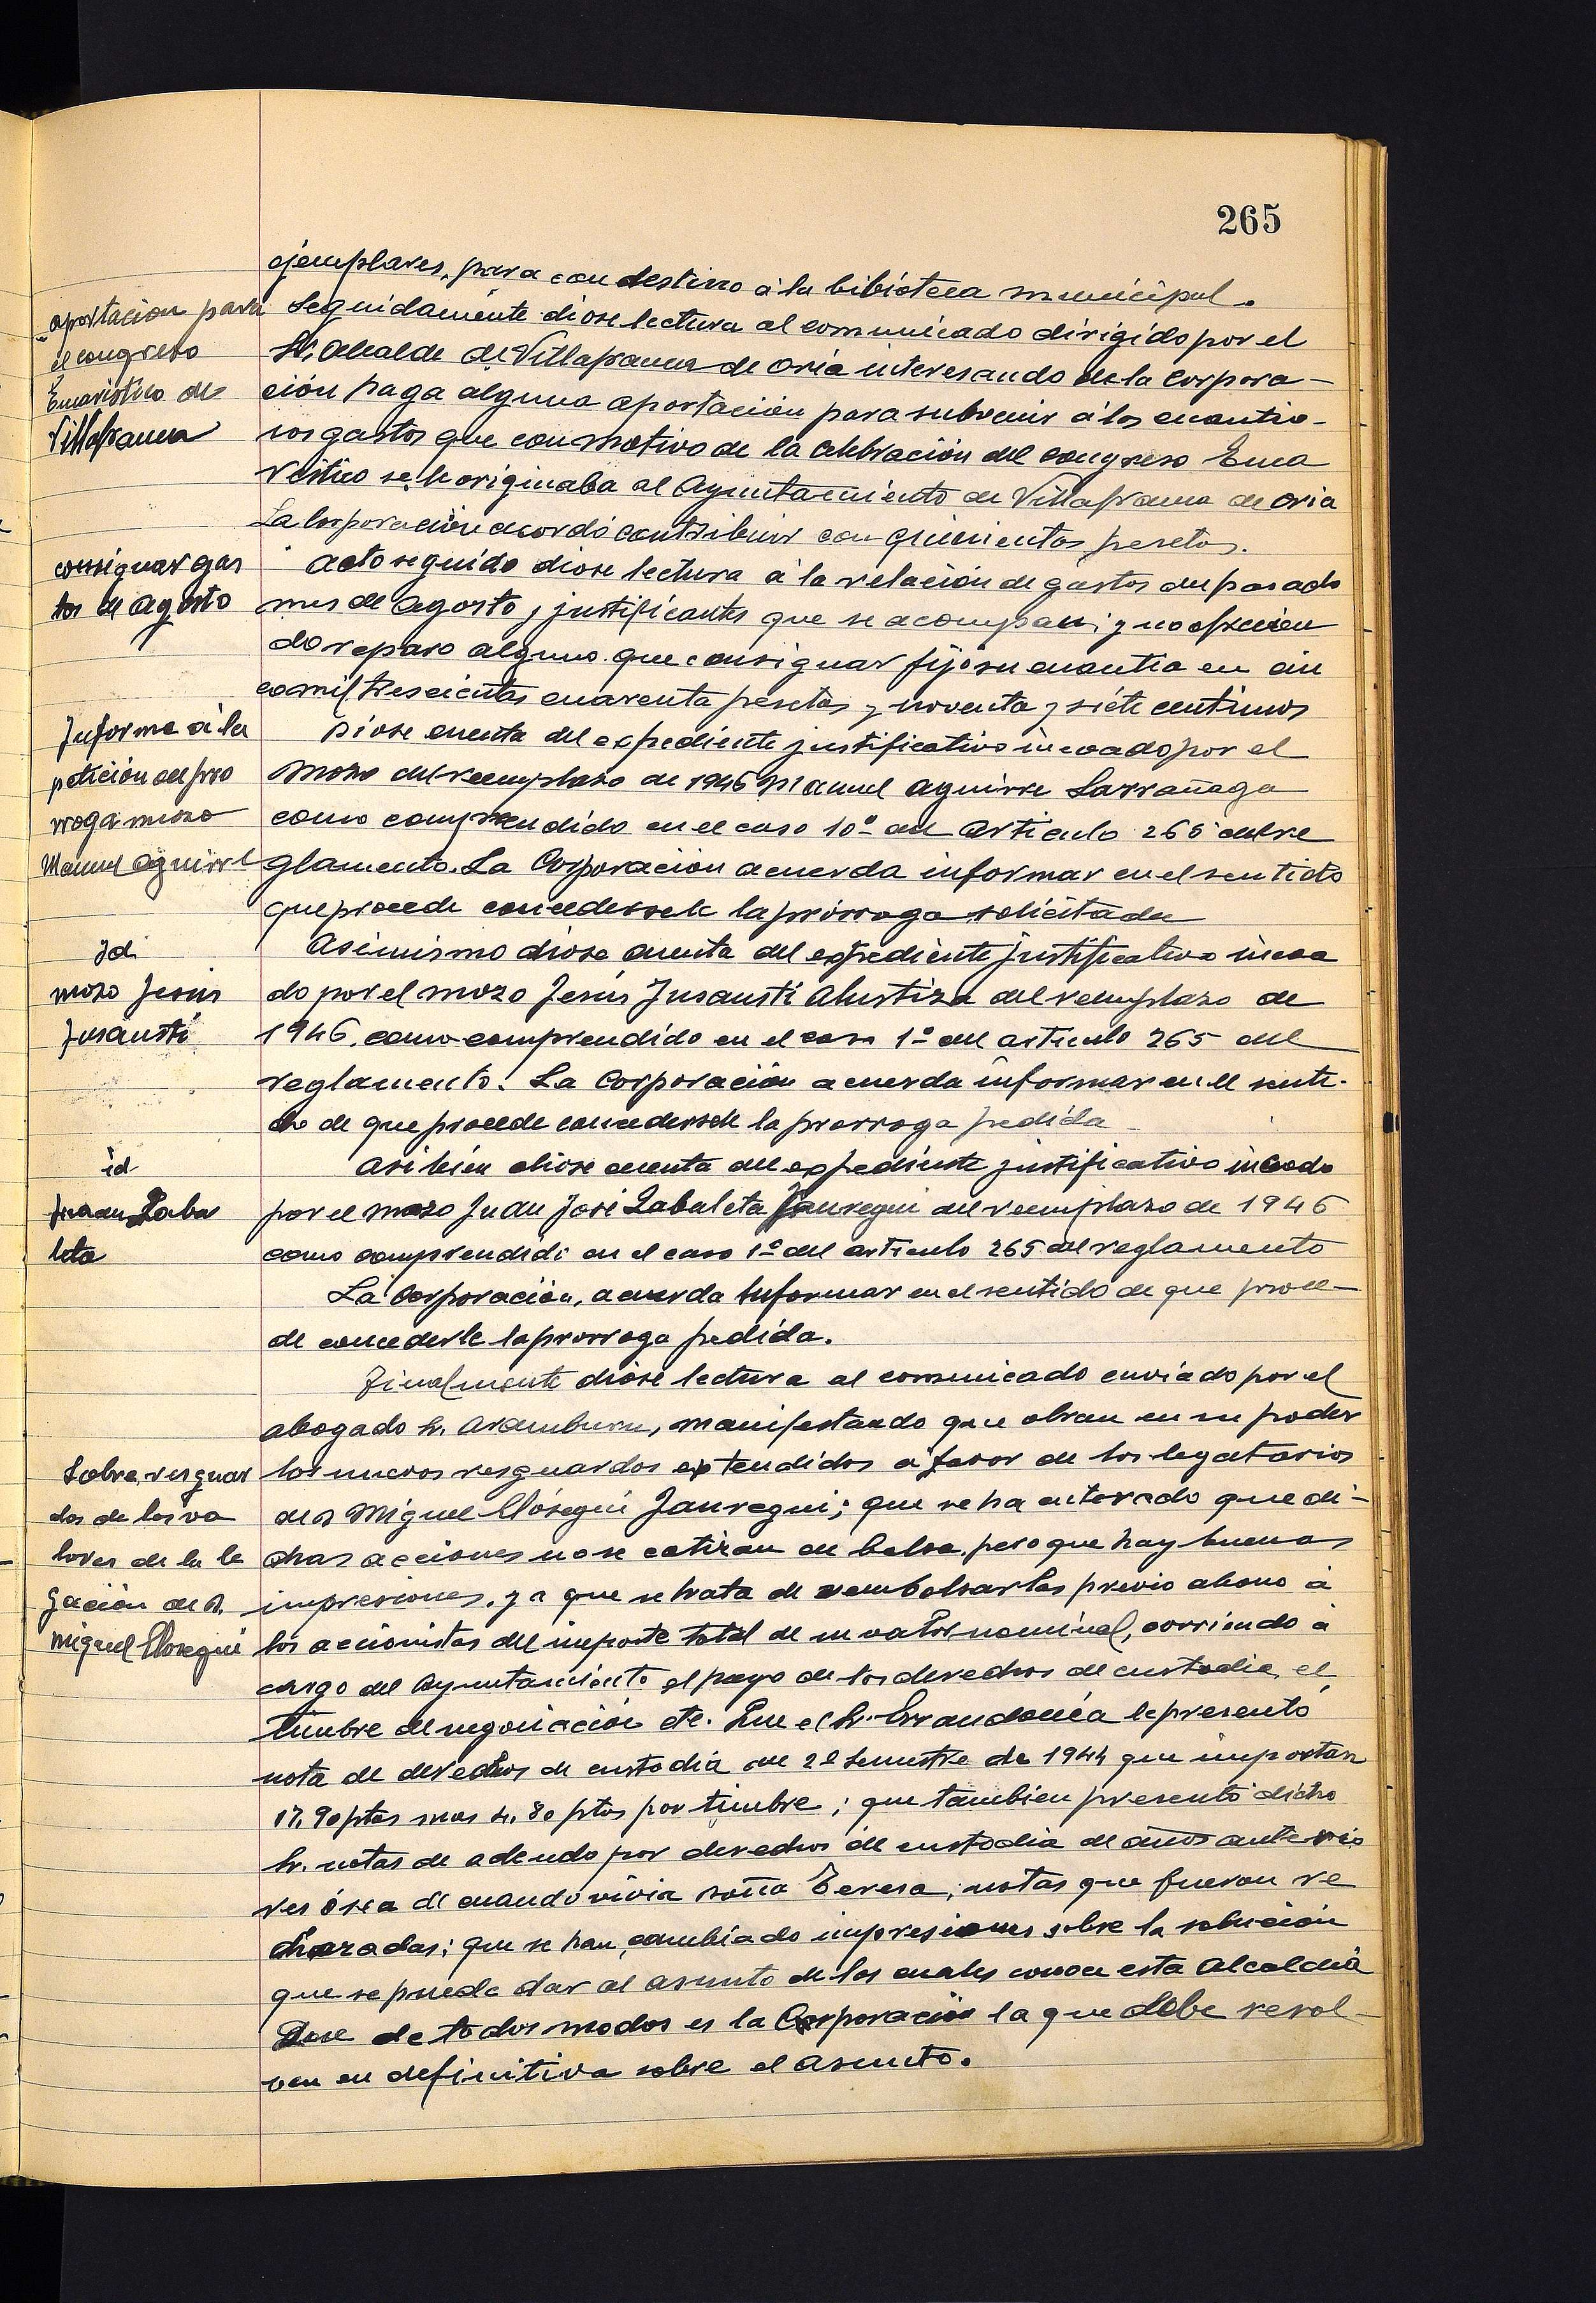 265
ejemplares, para con destino á la bibioteca municipal.
aportacion para
el congreso
Eucaristico de
Villafranca
Seguidamente diose lectura al comunicado dirigido por el
Sr. Alcalde de Villafranca de Oria interesando de la Corpora-
ción haga alguna aportación para subvenir á los cuantio-
sos gastos que con motivo de la celebración del congreso Euca
ristico se le originaba al Ayuntamiento de Villafranca de Oria
La Corporación acordó contribuir con quinientas pesetas.
consignar gas
tos de Agosto
Acto seguido diose lectura á la relación de gastos del pasado
mes de Agosto y justificantes que se acompañan, y no ofrecien
do reparo alguno que consignar fijó su cuantia en cin
co mil trescientas cuarenta pesetas y noventa y siete centimos
Informe á la
petición del pro
rroga mozo
Manuel Aguirre
Diose cuenta del expediente justificativo incoado por el
mozo del reemplazo de 1946 Manuel Aguirre Larrañaga
como comprendido en el caso 10º del Articulo 265 del re
glamento. La Corporación acuerda informar en el sentido
que procede concedersele la prórroga solicitada
Id.
mozo Jesús
Insausti
Asimismo diose cuenta del expediente justificativo incoa
do por el mozo Jesús Insausti Alustiza del reemplazo de
1946, como comprendido en el caso 1º del articulo 265 del
reglamento. La Corporación acuerda informar en el senti-
do de que procede concedersele la prorroga pedida
id
Juan Zaba
leta
Asi bien diose cuenta del expediente justificativo incoado
por el mozo Juan José Zabaleta Jauregui del reemplazo de 1946
como comprendido en el caso 1º del articulo 265 del reglamento
La Corporación, acuerda informar en el sentido de que proce-
de concederle la prorroga pedida.
Finalmente diose lectura al comunicado enviado por el
abogado Sr. Aramburu, manifestando que obran en su poder
Sobre resguar
dos de los va
lores de la le
gación de D.
Miguel Elosegui
los nuevos resguardos extendidos á favor de los legatarios
de D. Miguel Elósegui Jauregui; que se ha enterado que di-
chas acciones no se cotizan en bolsa, pero que hay buenas
impresiones, ya que se trata de rembolsarlas previo abono á
los accionistas del importe total de su valor nominal, corriendo á
cargo del Ayuntamiento el pago de los derechos de custodia, el
timbre de negociación etc. Que el Sr. Errandonéa le presentó
nota de derechos de custodia del 2º Semestre de 1944 que importan
17,90 ptas mas 4,80 ptas por timbre; que tambien presentó dicho
Sr. notas de adeudo por derechos de custodia de años anterio
res ó sea de cuando vivia Doña Teresa, notas que fueron re
chazadas; que se han cambiado impresiones sobre la solución
que se pueda dar al asunto de los cuales conoce esta Alcaldia
Que de todos modos es la Corporación la que debe resol-
ver en definitiva sobre el asunto.